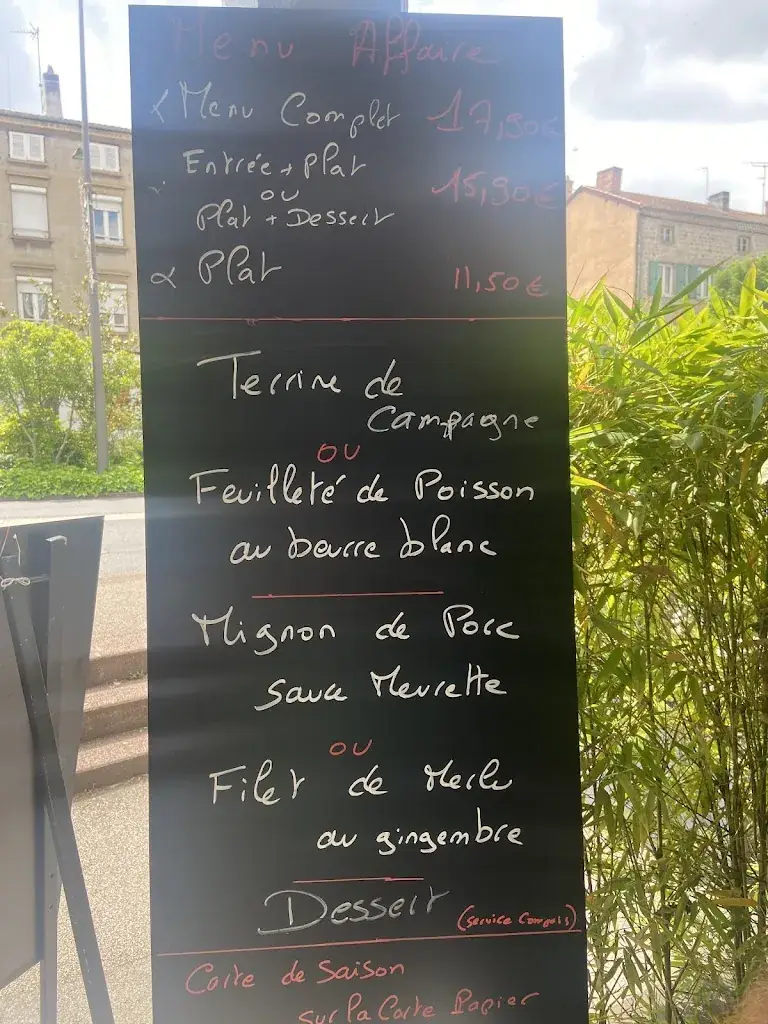 Menu Affaire
Menu Complet 17,90€
Entrée + Plat
ou 15,90€
Plat + Dessert
Plat 11,50€
Terrine de
Campagne
ou
Feuilleté de Poisson
au beurre blanc
Mignon de Porc
sauce Meurette
ou
Filet de Merlu
au gingembre
Dessert (service compris)
Carte de Saison
sur la Carte Papier